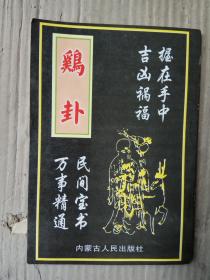 鷄卦
握在手中
吉凶禍福
民间宝书
万事精通
内蒙古人民出版社